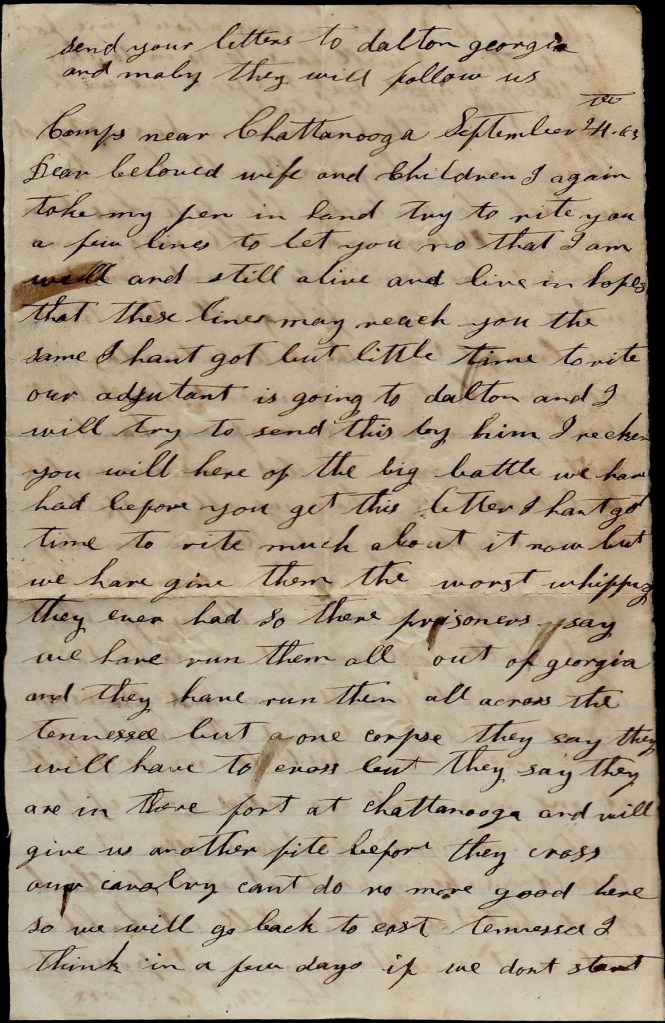 send your letters to dalton georgia
and maby they will follow us
Camps near Chattanooga September 24th .63
Dear beloved wife and Children I again
take my pen in hand try to rite you
a few lines to let you no that I am
well and still alive and live in hopes
that these lines may reach you the
same I hant got but little time to rite
our adjutant is going to dalton and I
will try to send this by him I recken
you will here of the big battle we have
had before you get this letter I hant got
time to rite much about it now but
we have give them the worst whippng
they ever had so there prisoners say
we have run them all out of georgia
and they have run them all across the
tennessee but a one corpse they say they
will have to cross but they say they
are in there fort at chattanooga and will
give us another fite before they cross
our cavalry cant do no more good here
so we will go back to east tennessee I
think in a few days if we dont start